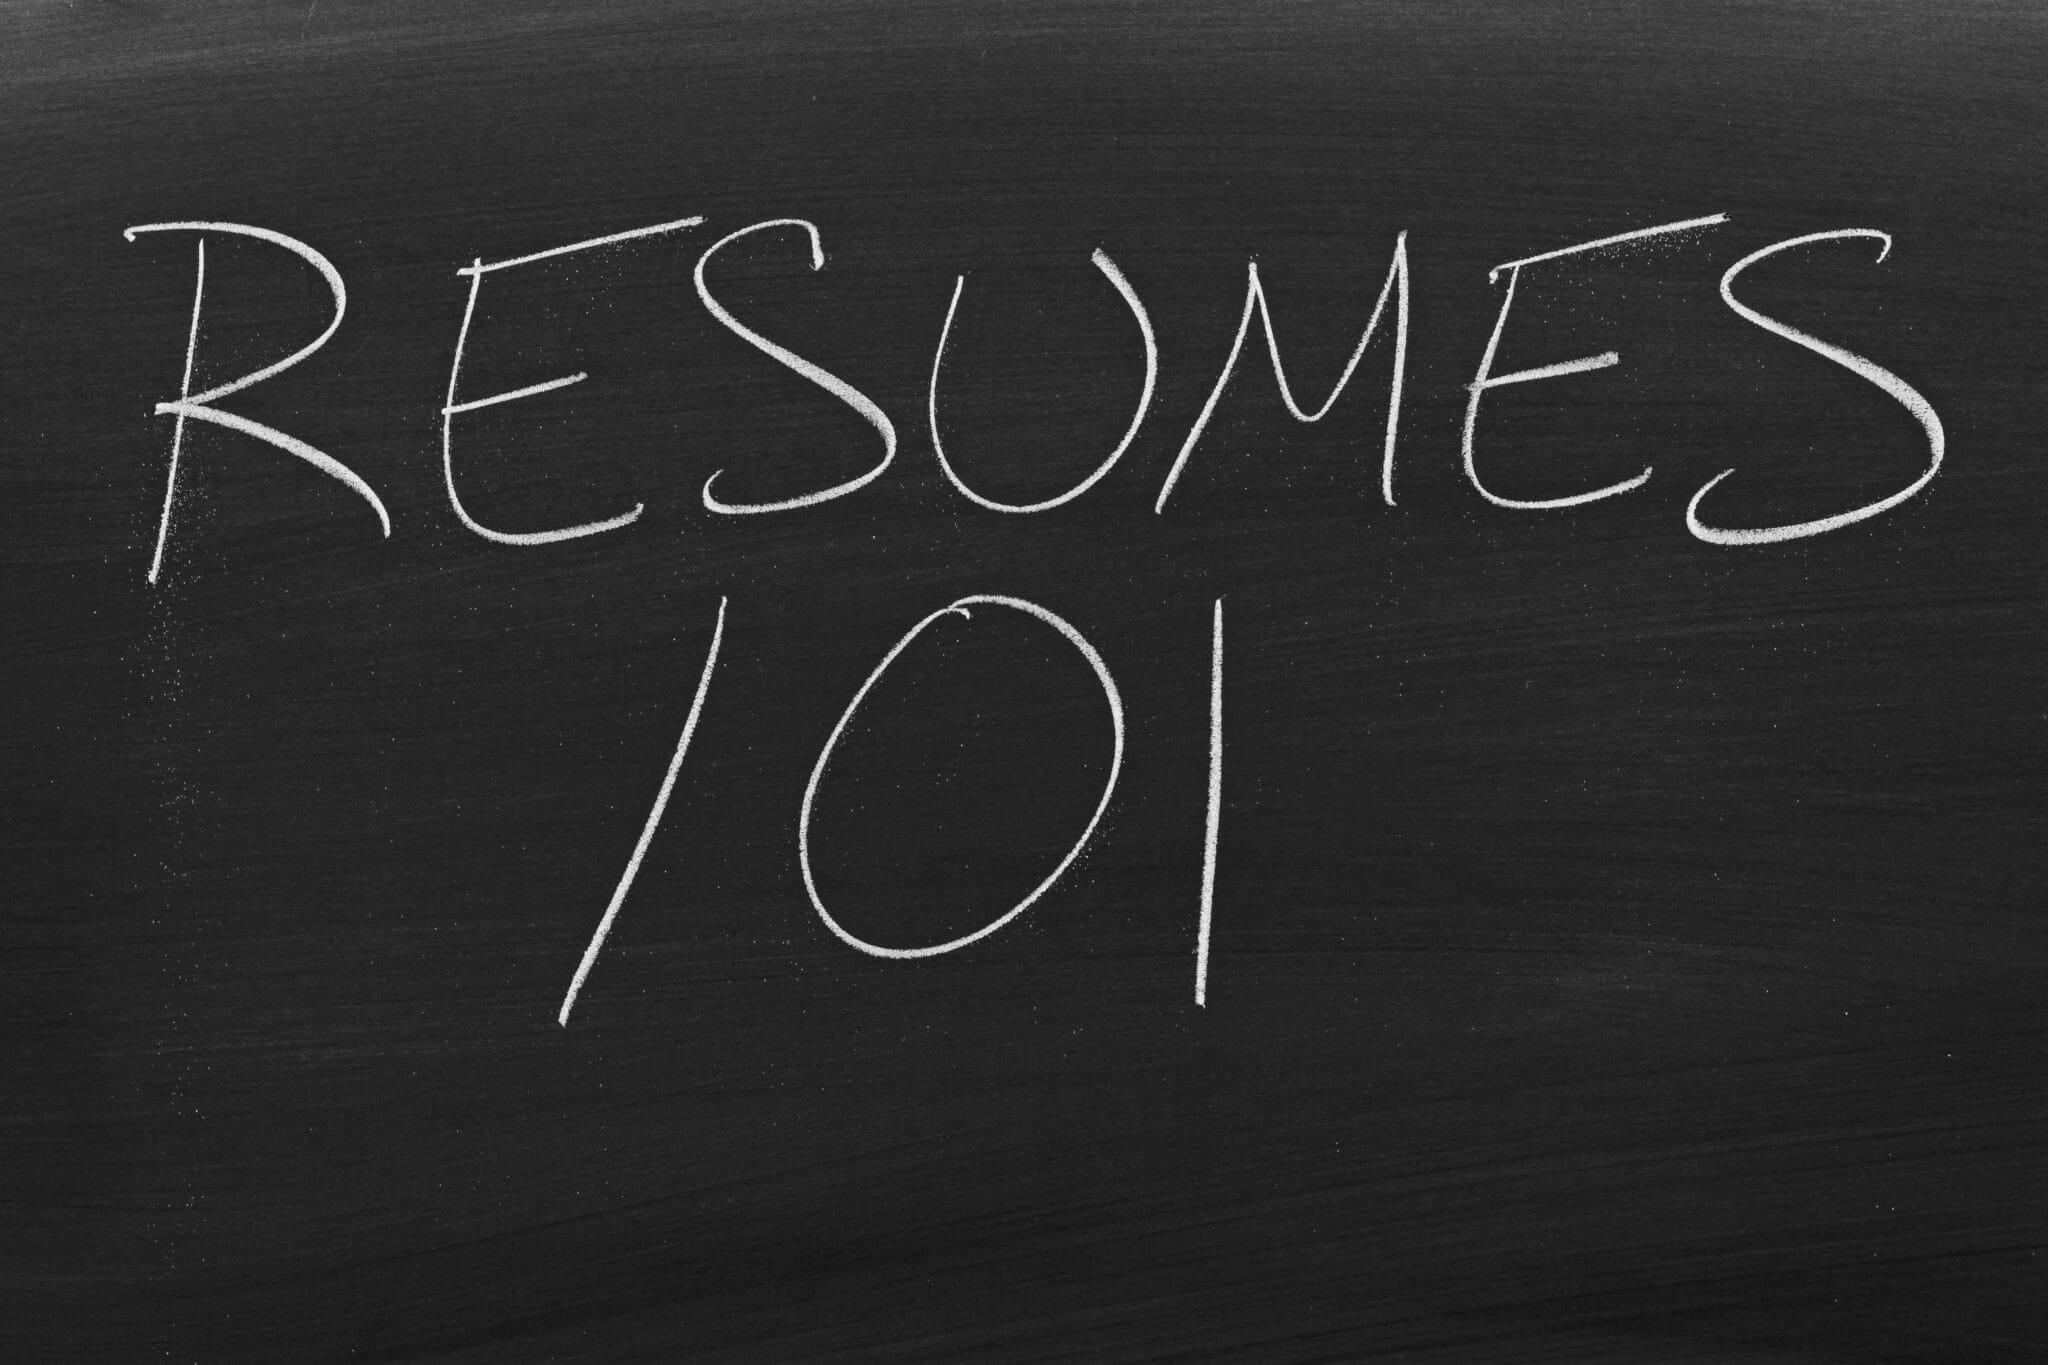 RESUMES
101